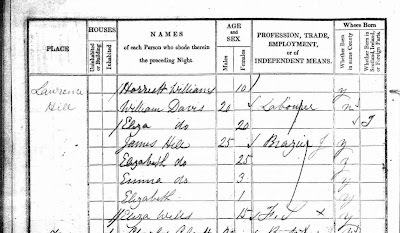 PLACE
HOUSES
Uninhabited or Building
Inhabited
NAMES
of each Person who abode therein
the preceding Night.
AGE
and
SEX
Males
Females
PROFESSION, TRADE,
EMPLOYMENT,
or of
INDEPENDENT MEANS.
Where Born
Whether Born in same County
Whether Born in Scotland, Ireland, or Foreign Parts.
Lawrence Hill
Harriett Williams 10 y
William Davis 20 Labourer n
Eliza do 20 I
James Hill 25 Brazier J y
Elizabeth do 25 y
Emma do 3 y
Elizabeth 1 y
Eliza Wills 15 y